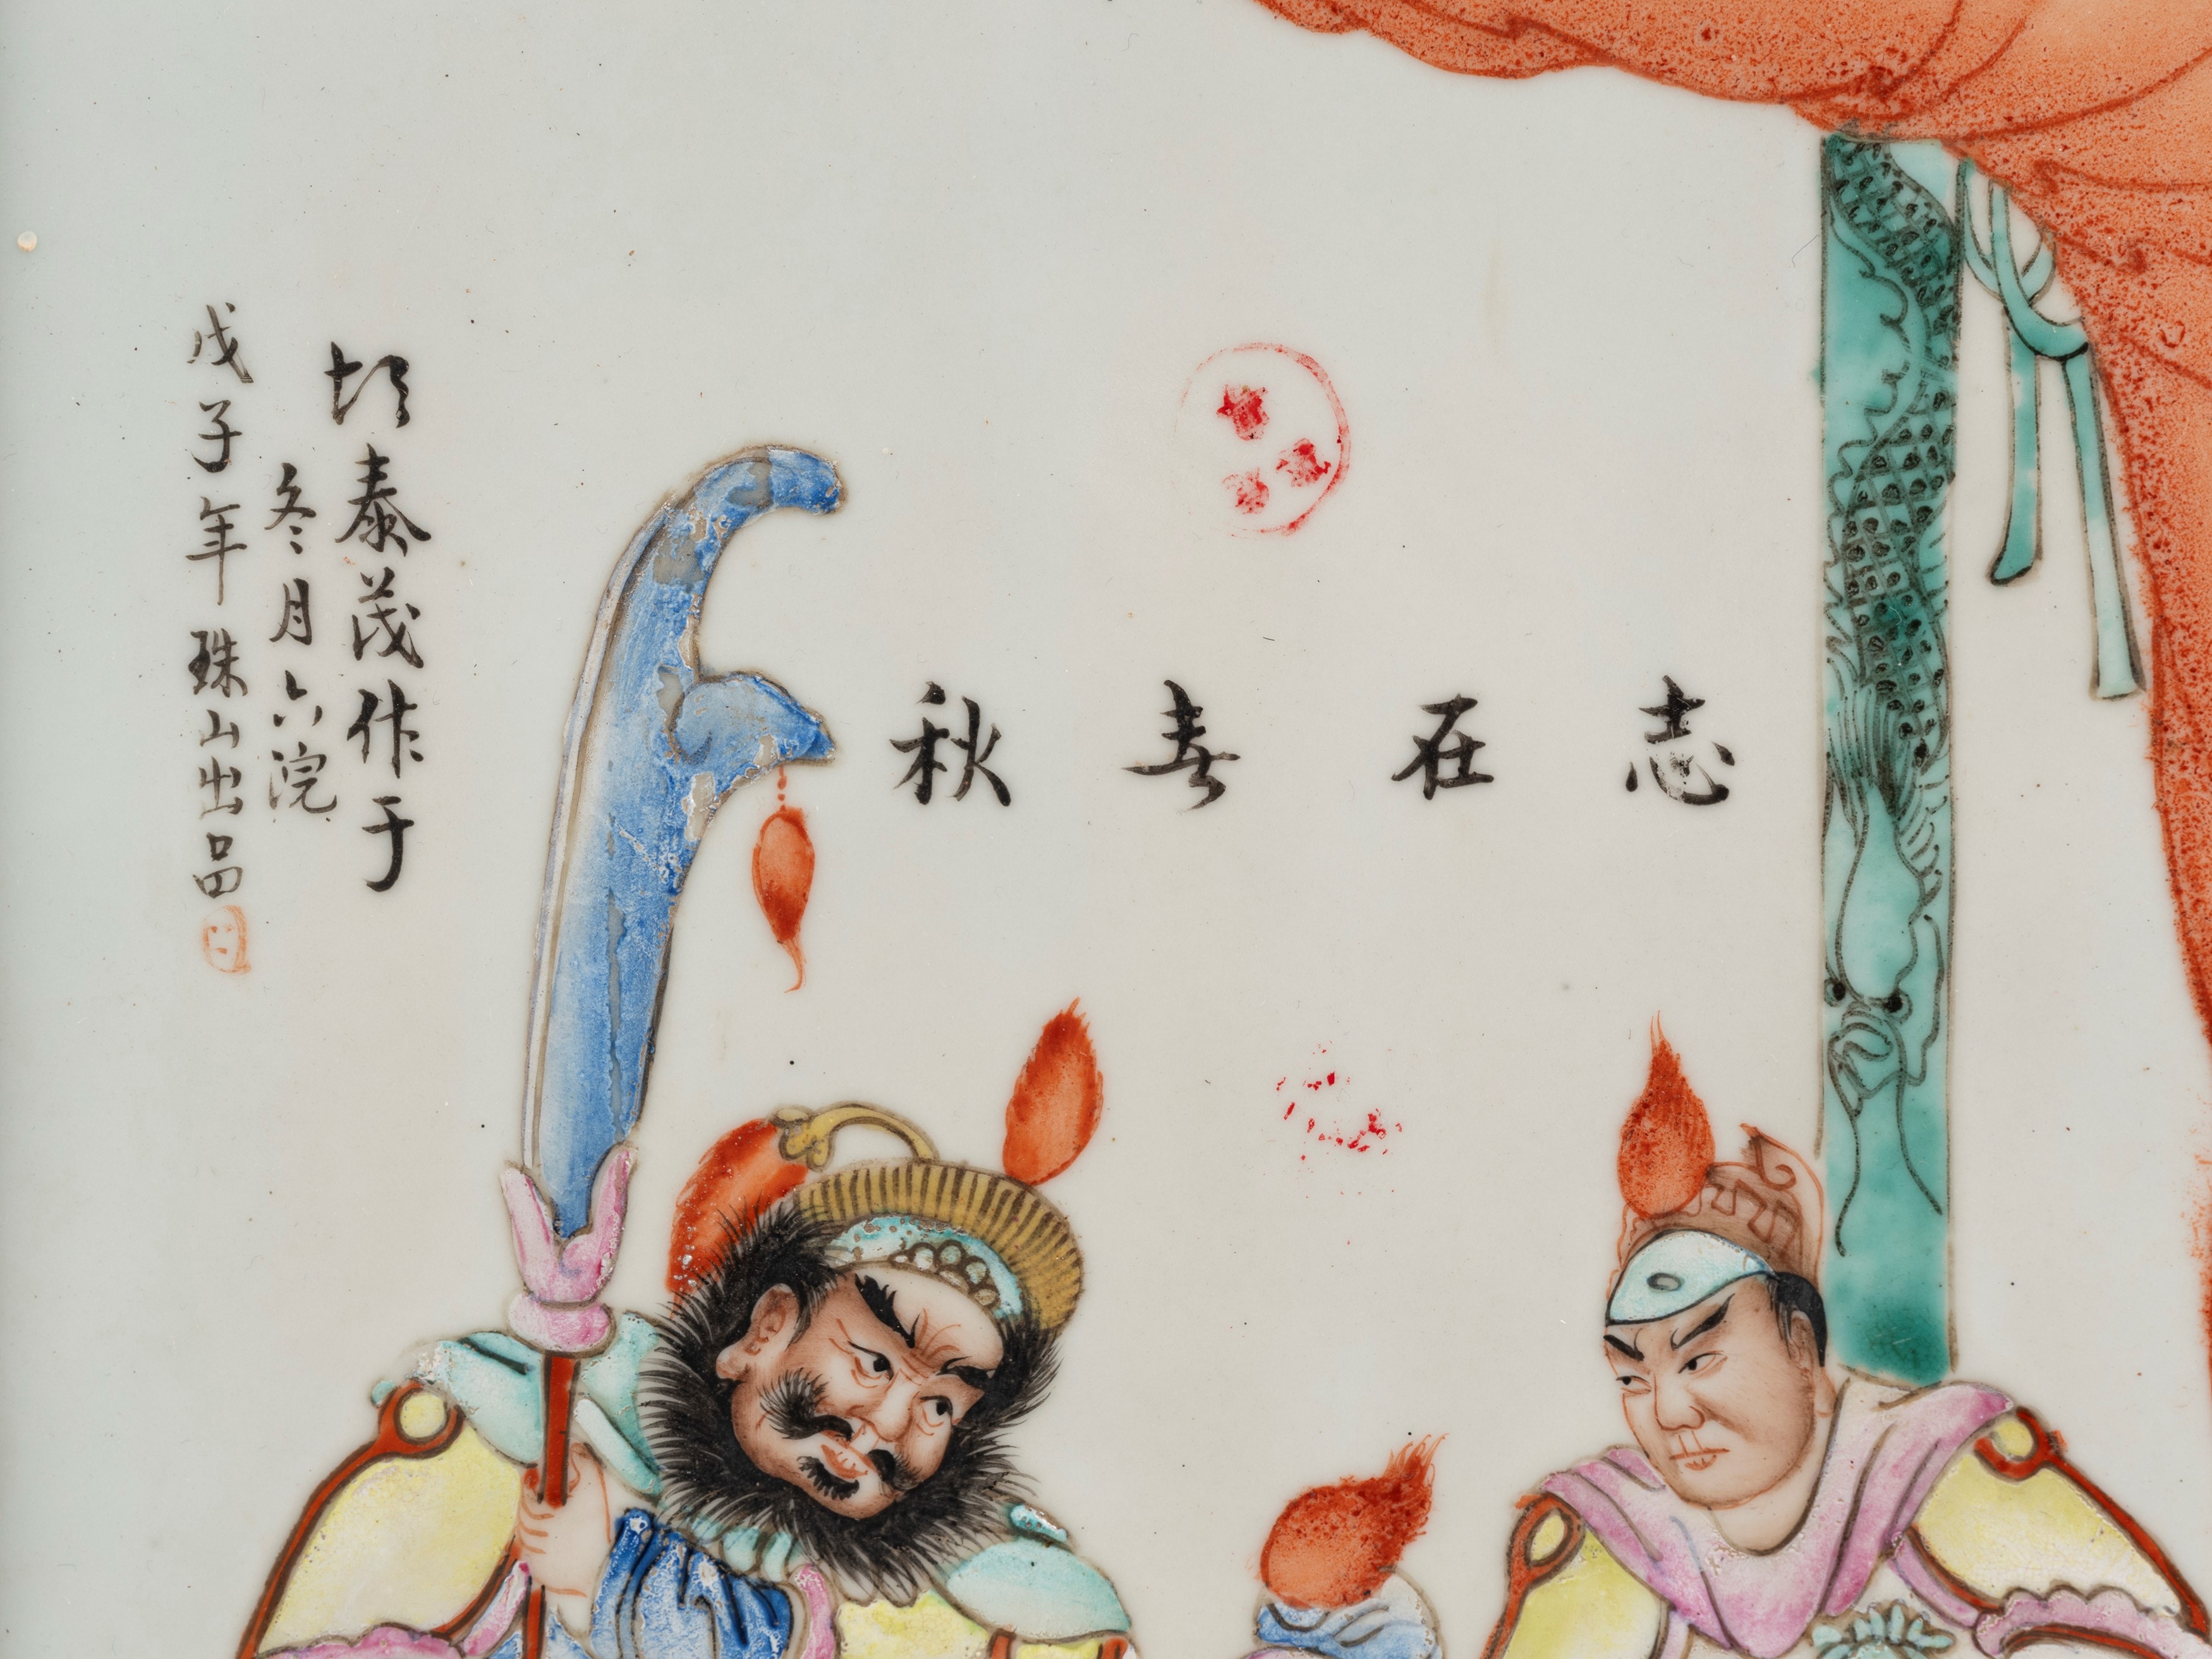 志在春秋
胡泰茂作于
冬月六浣
戊子年珠山出品